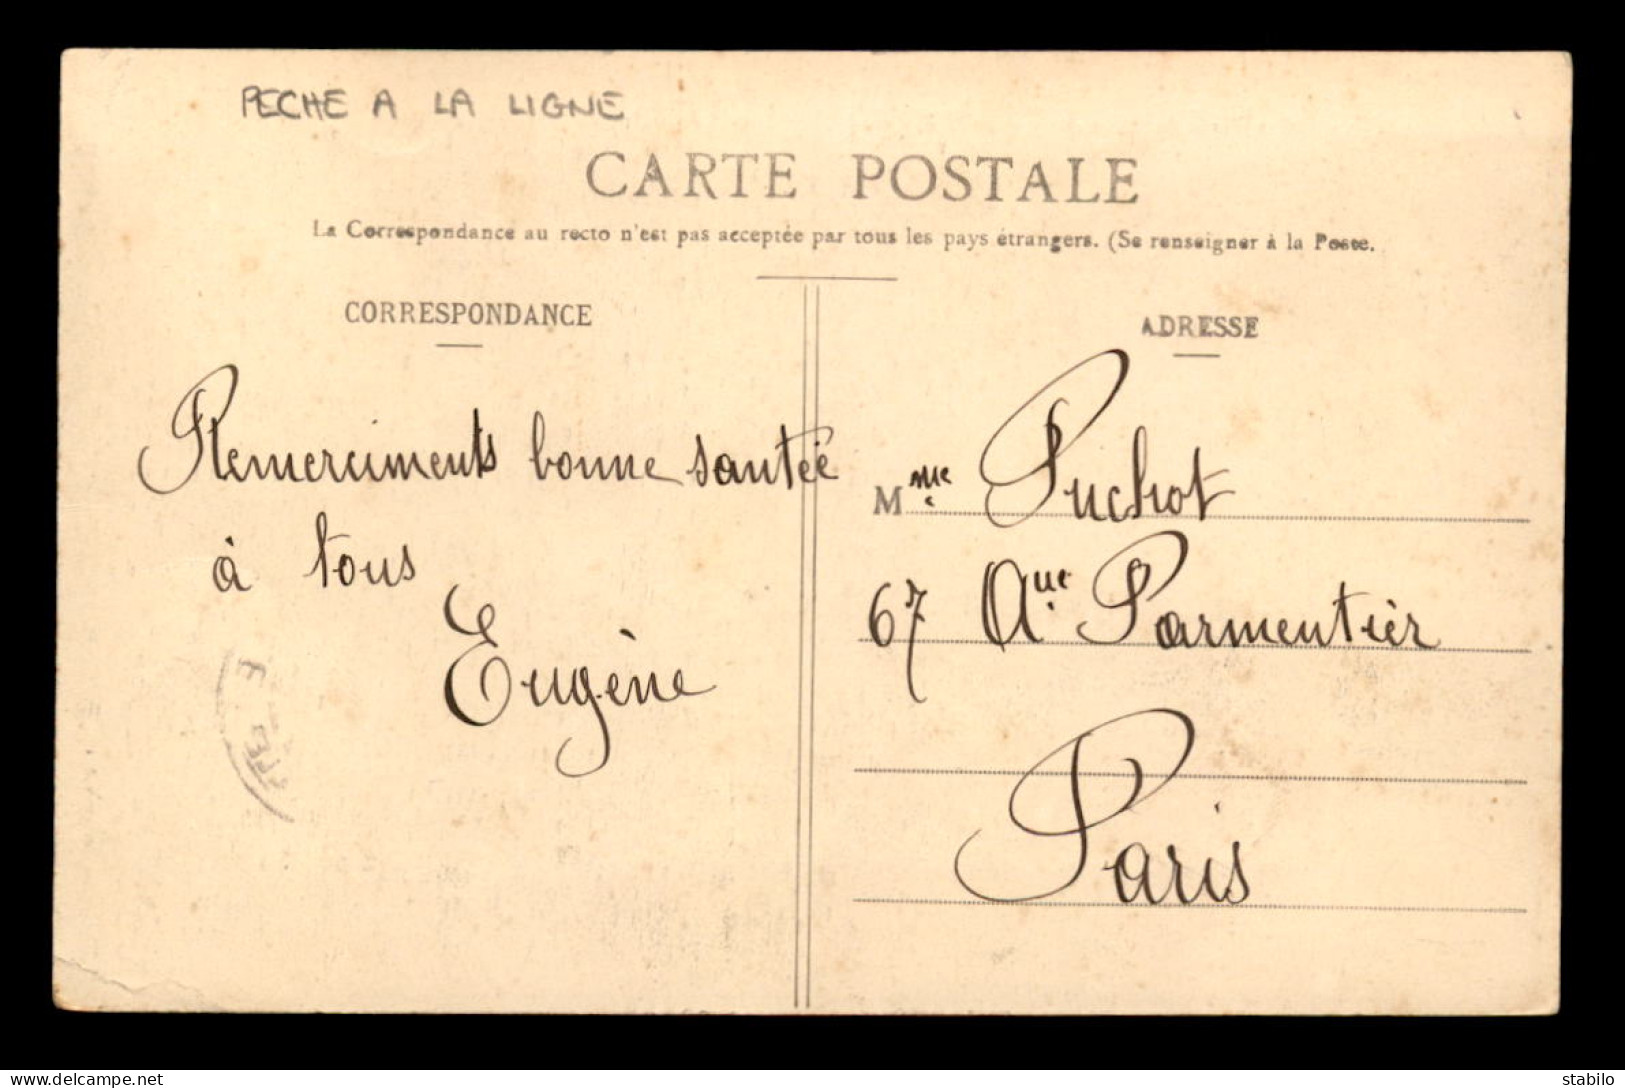 PECHE A LA LIGNE
CARTE POSTALE
La Correspondance au recto n'est pas acceptée par tous les pays étrangers. (Se renseigner à la Poste.
CORRESPONDANCE
Remerciments bonne santée
à tous
Eugène
ADRESSE
Mme Puchot
67 Aue Parmentier
Paris
delcampe.net
stabilo